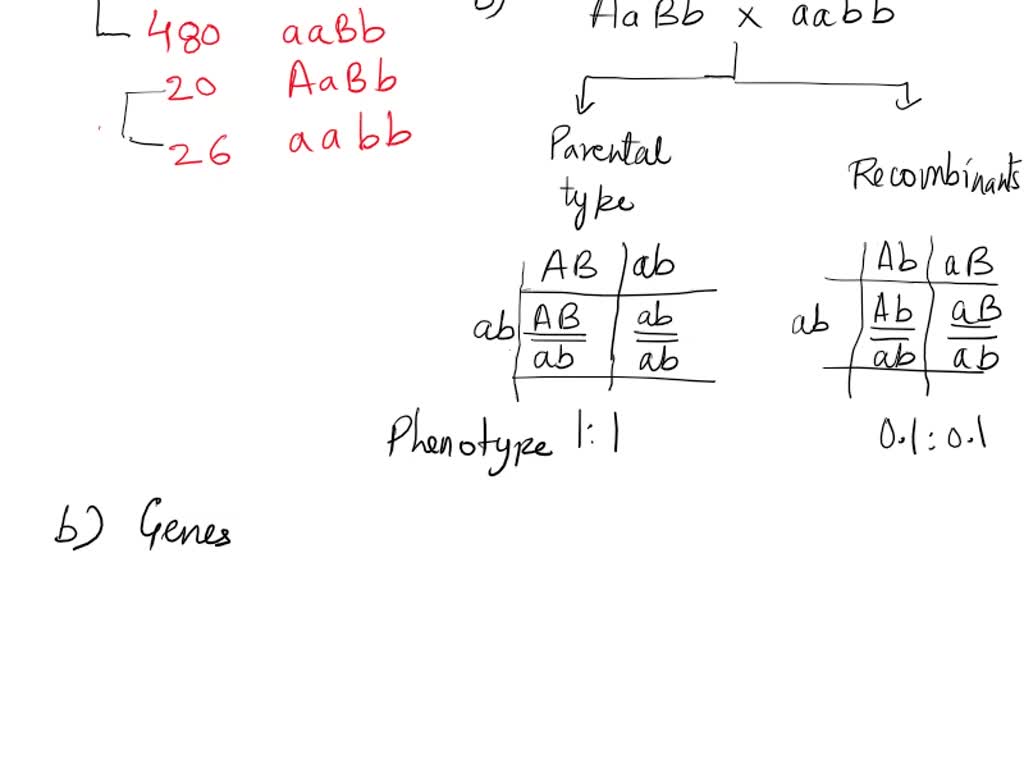 480 aaBb
20 AaBb
26 aabb
AaBb x aabb
Parental type
Recombinants
AB ab
ab AB ab
ab ab
Ab aB
ab Ab aB
ab ab
Phenotype 1:1 0.1:0.1
b) Genes